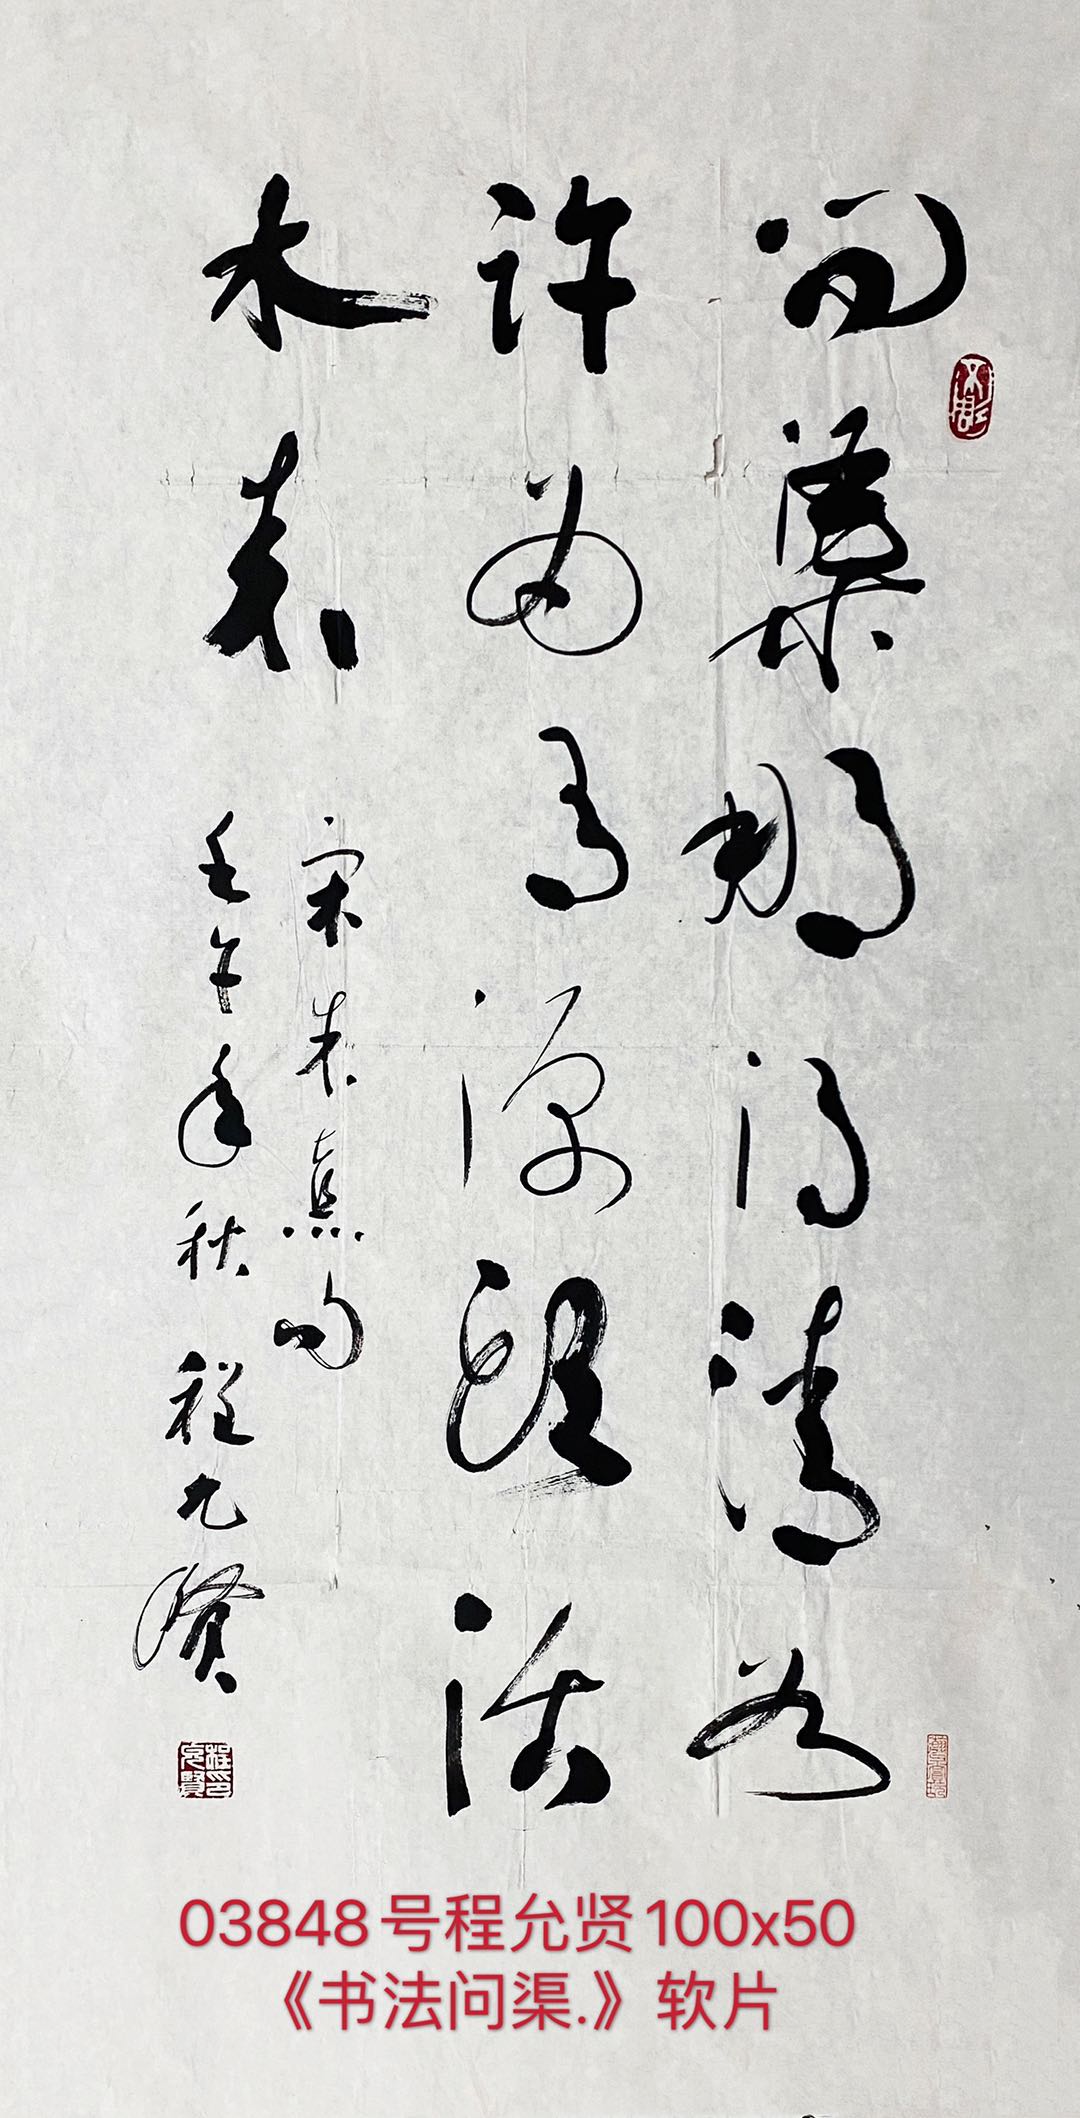 问渠那得清如
许为有源头活
水来
宋朱熹句
壬午年秋 程允贤
程允賢印
03848号程允贤100x50
《书法问渠.》软片